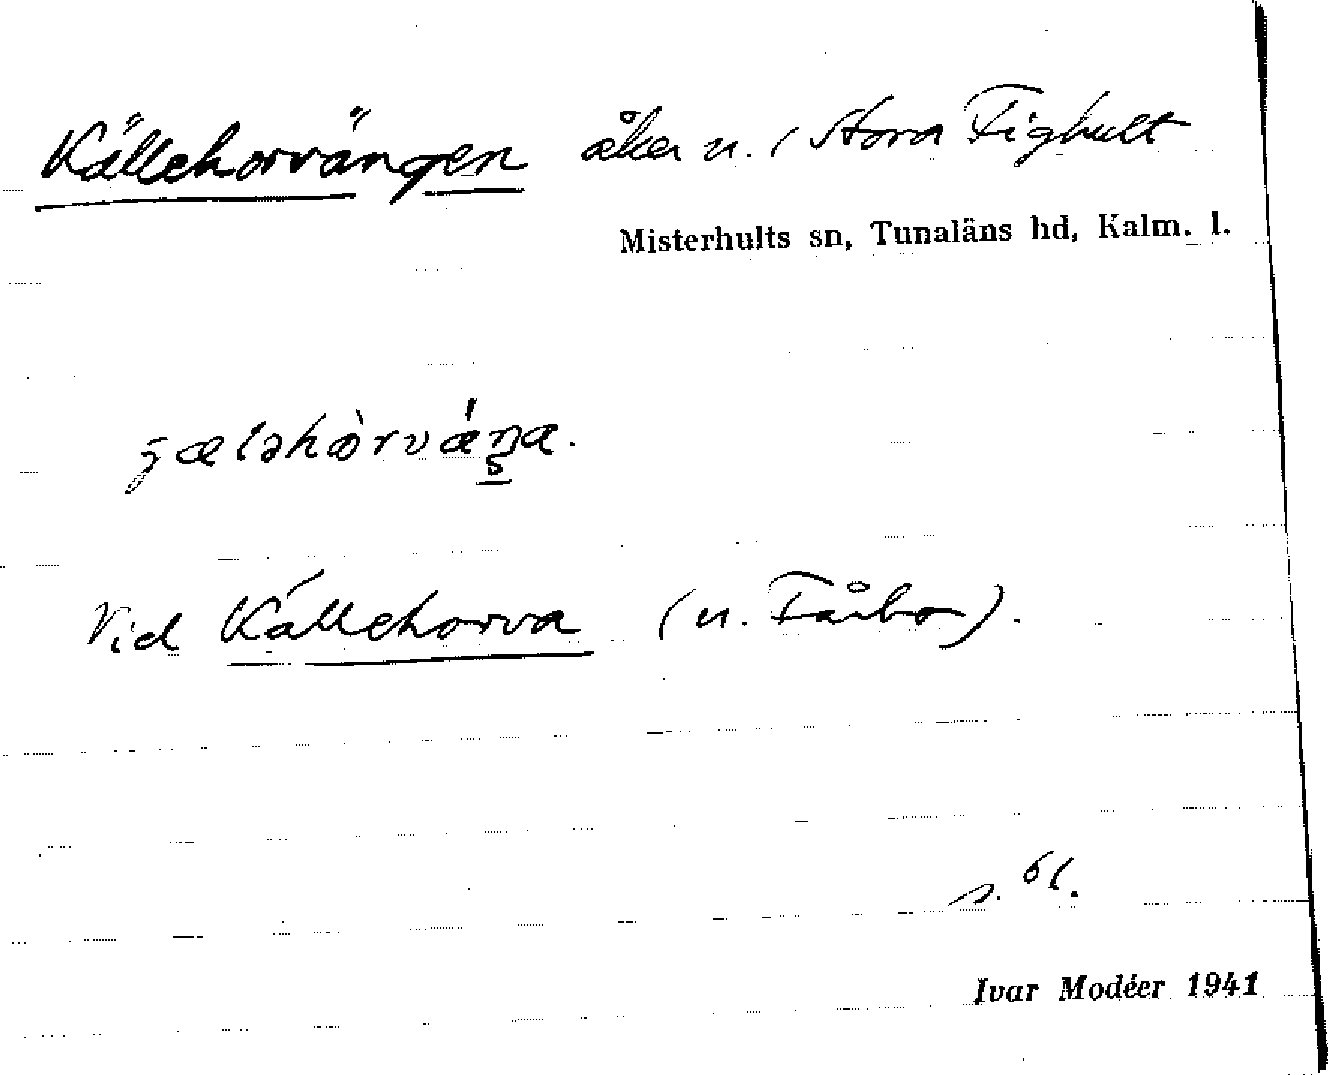 Källehorvängen åker u. 1 Stora Fighult
Misterhults sn, Tunaläns hd, Kalm. l.
Vid Källehorva (u. Fårbo).
s. 61.
Ivar Modéer 1941